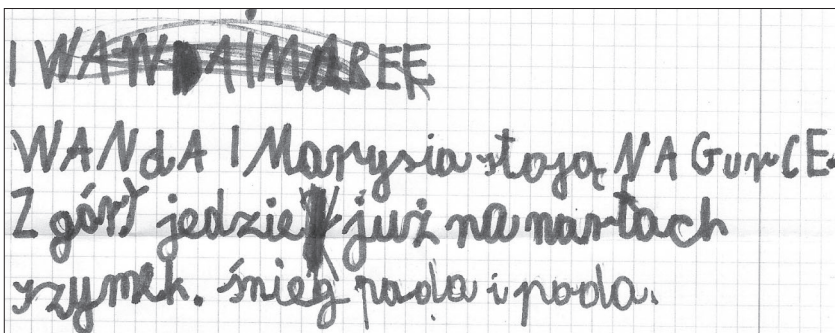 I WANDA I MAREE
WANdA I Marysia stoją NA GurCE.
Z górt jedzie już na nartach
szymek. śnieg pada i pada.